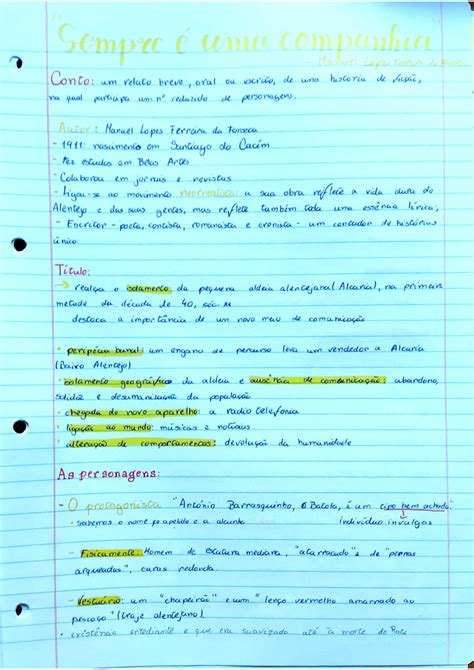 "Sempre é uma companhia"
- Manuel Lopes Fonseca
Conto: um relato breve, oral ou escrito, de uma história de ficção,
na qual participa um nº reduzido de personagens.
Autor: Manuel Lopes Ferreira da Fonseca
- 1911: nascimento em Santiago do Cacém
- Fez estudos em Belas Artes
- Colaborou em jornais e revistas
- Ligou-se ao movimento neorrealista: a sua obra reflete a vida dura do
Alentejo e das suas gentes, mas reflete também toda uma essência lírica;
- Escritor - poeta, contista, romancista e cronista - um contador de histórias
único
Título:
→ realça o isolamento da pequena aldeia alentejana (Alcaria), na primeira
metade da década de 40, séc.
destaca a importância de um novo meio de comunicação
• peripécia banal: um engano de percurso leva um vendedor a Alcaria
(Baixo Alentejo)
• isolamento geográfico da aldeia e ausência de comunicação: abandono,
solidão e desumanização da população
• chegada do novo aparelho: a radio telefonia
• ligação ao mundo: músicas e notícias
• alteração de comportamentos: devolução da humanidade
As personagens:
- O protagonista "António Barrasquinho, o Batola, é um tipo bem achado."
• sabemos o nome, o apelido e a alcunha individuo invulgar
- Fisicamente: Homem de estatura mediana, "atarracado" e de "pernas
arqueadas", caras redonda.
- Vestuário: um "chapeirão" e um "lenço vermelho amarrado ao
pescoço" (traje alentejano).
• existência entediante e que era suavizado até à morte do Rata